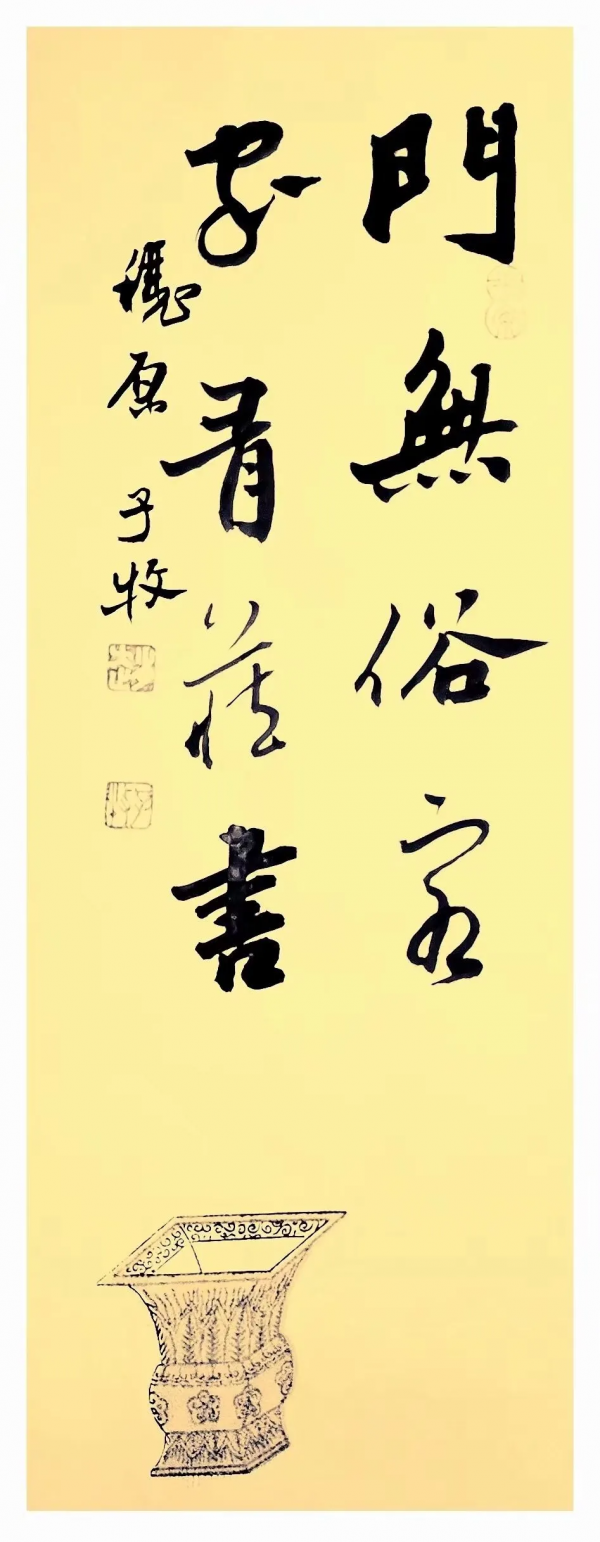 門無俗客
家有藏書
穗原子牧